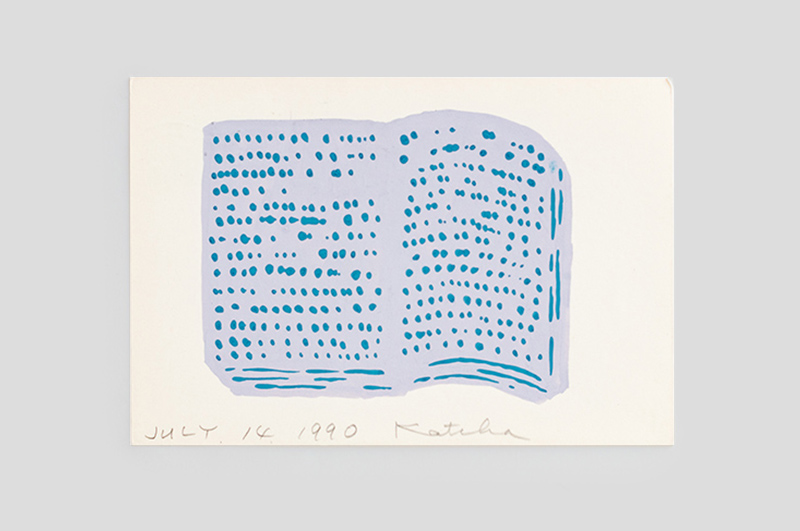 JULY. 14. 1990 Katiha